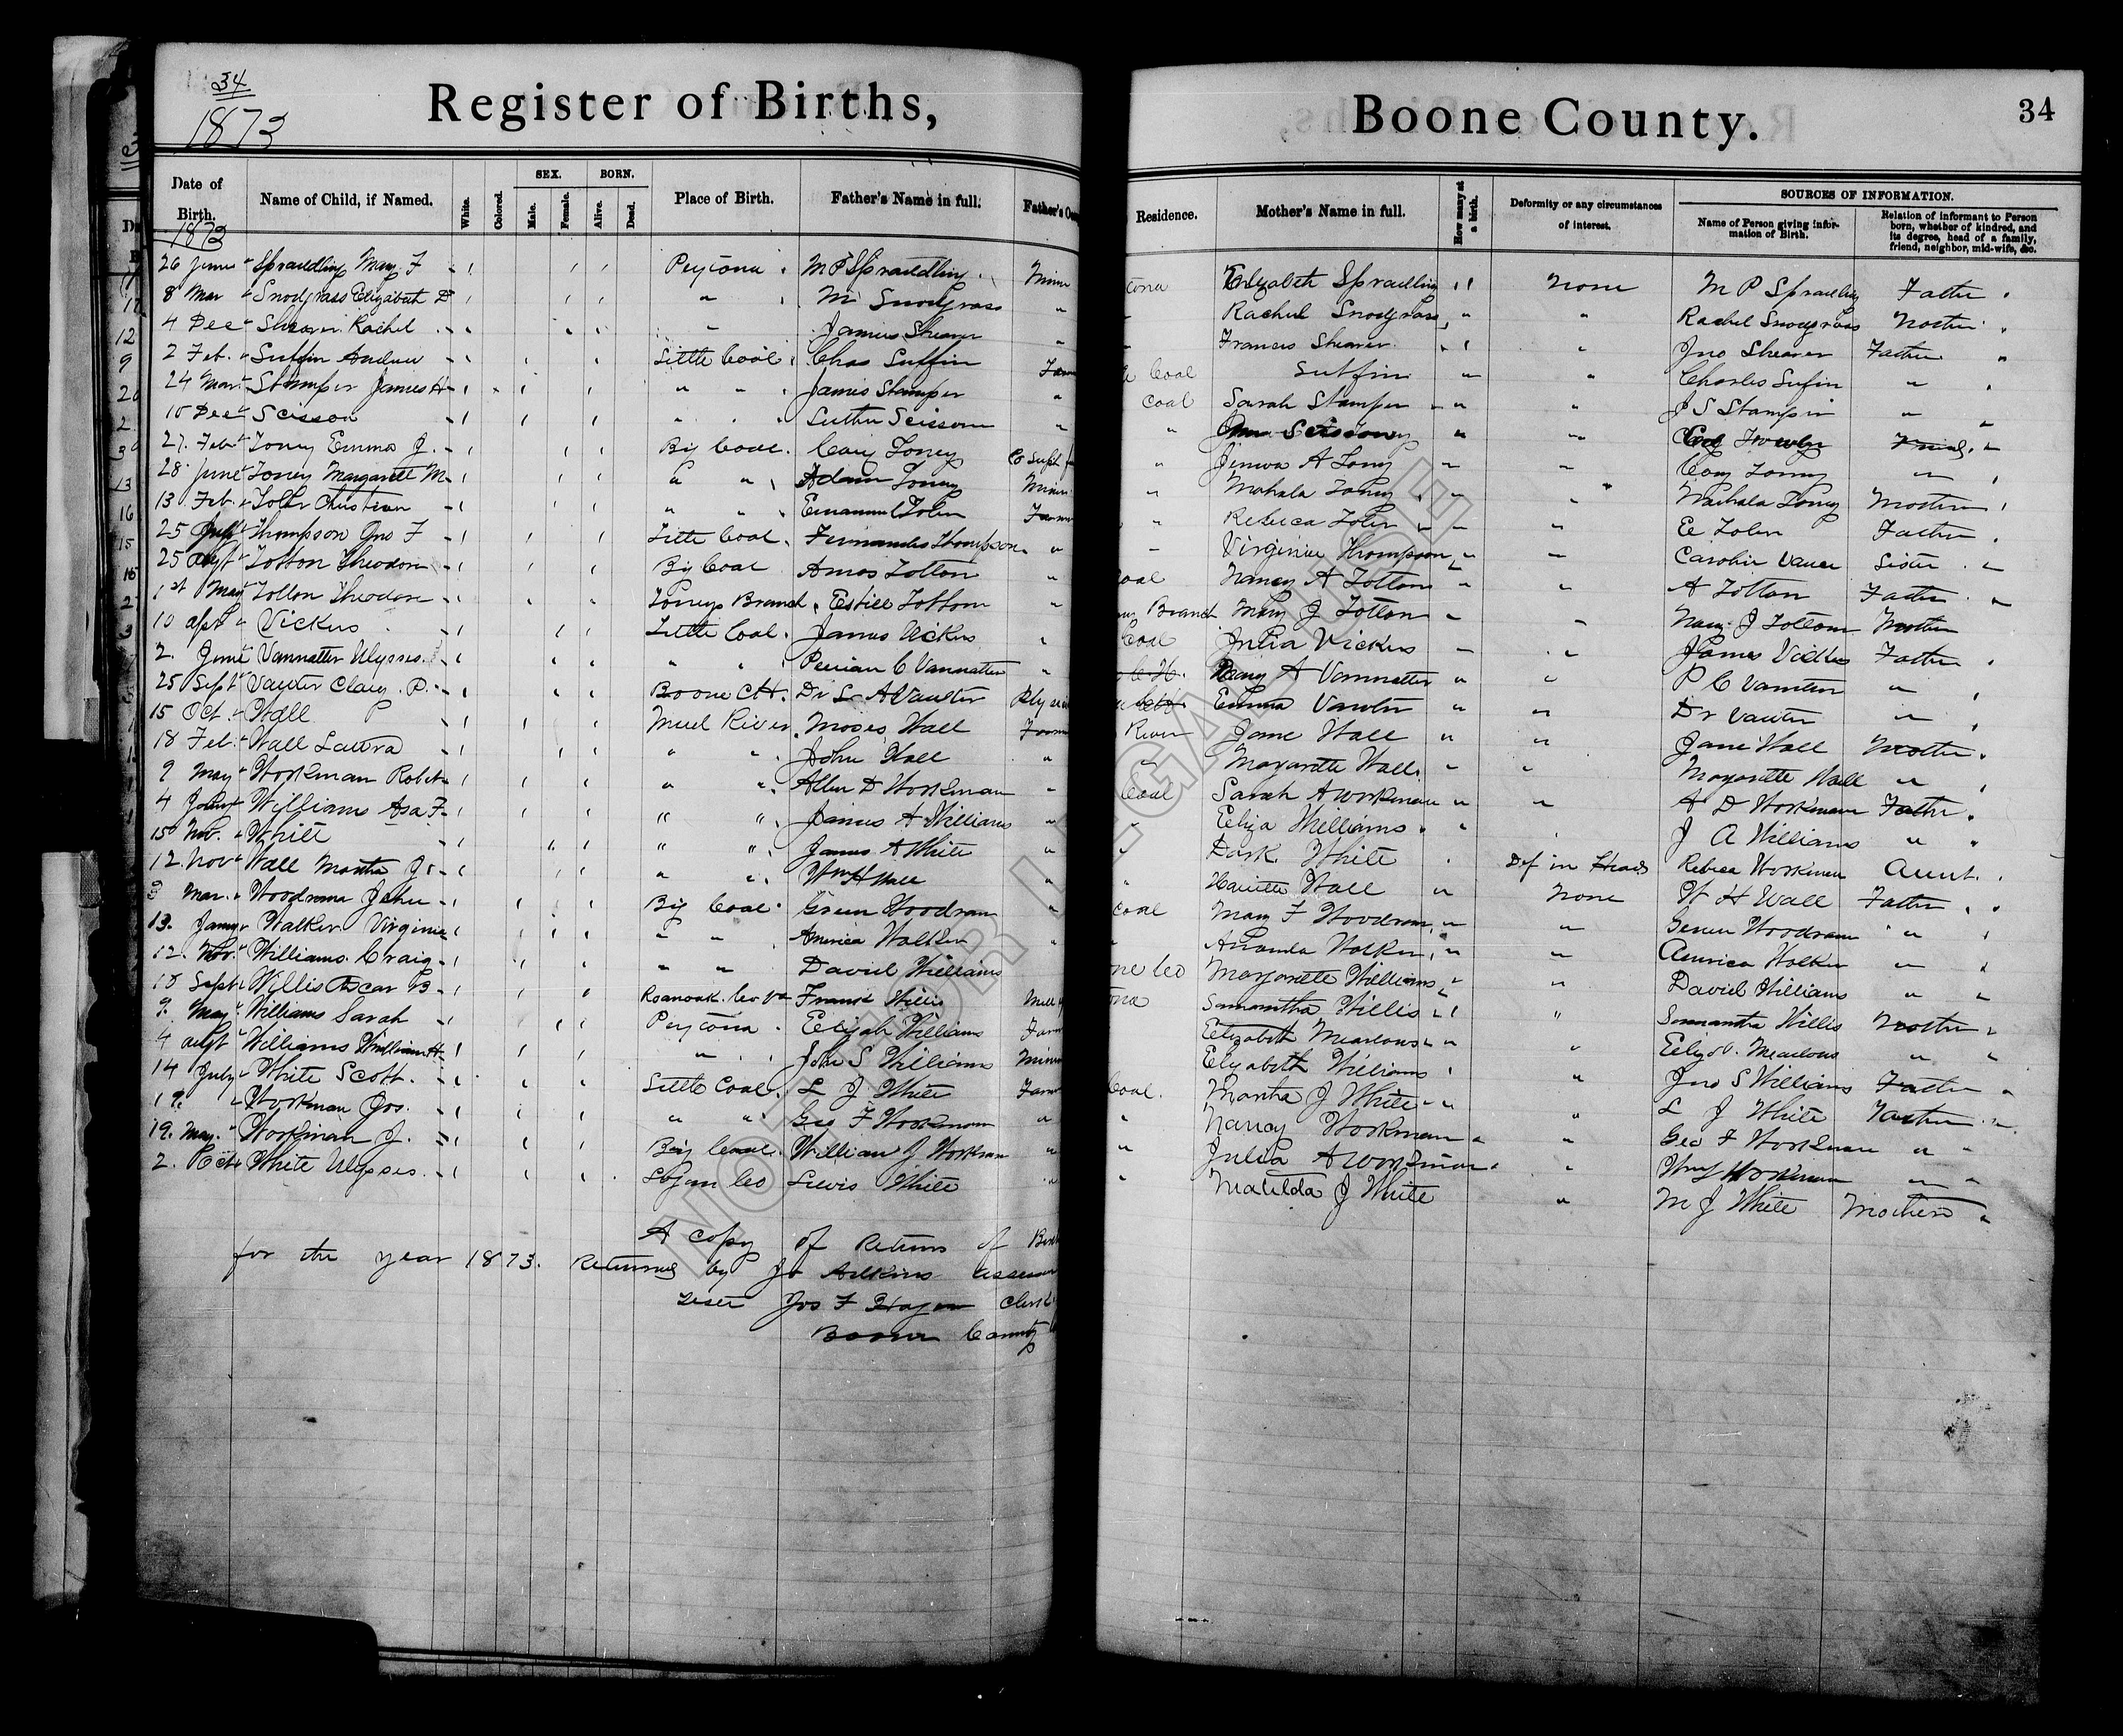 34
1873
Register of Births,
Boone County.
34
Date of Birth. Name of Child, if Named. White. Colored. SEX. Male. Female. BORN. Alive. Dead. Place of Birth. Father's Name in full. Father's Residence. Mother's Name in full. How many at a birth. Deformity or any circumstances of interest. SOURCES OF INFORMATION. Name of Person giving information of Birth. Relation of informant to Person born, whether of kindred, and its degree, head of a family, friend, neighbor, mid-wife, &c.
1873
26 June " Spraudling Mary F Peytona M P Spraudling Elizabeth Spraudling None M P Spraudling Father
8 Mar " Snodgrass Elizabeth D " M Snodgrass " Rachel Snodgrass " " Rachel Snodgrass Mother
4 Dec " Shearer Rachel " James Shearer " Francis Shearer " Jno Shearer Father "
2 Feb. " Sutfin Andrew Little Coal Chas Sutfin Farm Coal Sutfin " " Charles Sufin "
24 Mar " Stamper James H " " James Stamper " Coal Sarah Stamper " " J S Stamper "
10 Dec " Scisson " " Luther Scissom " "
27 Feb " Toney Emma J. Big Coal. Cary Toney " A Toney " " Cary Toney "
28 June " Toney Margarett M " " Adam Toney Miner " Mahala Toney " " Mahala Toney Mother
13 Feb. " Toler Christian " " Emanuel Toler Farm " Rebeca Toler " " E Toler Father
25 Thompson Jno F Little Coal Fernandes Thompson " Virginia Thompson " " Caroline Sister
25 Augt " Totton Theodore Big Coal Amos Totton " oal Nancy A Totton " " A Totton Father "
1st May Totton Theodore Toneys Branch Estill Tottom " Branch Mary J Totton " " Mary J Tottom Mother
10 Apr " Vickers Little Coal. James Vickers " Coal Julia Vickers " " James Vickers Father
2. June " Vannatter Ulysses. " " C Vannatter " C H. Mary A Vannatter " " P C Vannatter "
25 Sept " Vauter P. Boone C H. Dr L A Vaulter Emma " " Dr Vauter "
15 Oct. " Wall Mud River Moses Wall Farm River Jane Wall " " Jane Wall Mother
18 Feb. " Wall Laura " " John Wall " Margarette Wall " " Margarette Wall "
9 May " Workman Robet " " Allen D Workman " Coal Sarah A Workman " " A D Workman Father
4 Williams Asa F " " James A Williams " " Eliza Williams " J A Williams "
15 Nov. " White " " James A White " " Dark White Def in Head Rebeca Workman Aunt.
12 Nov " Wall Martha J " " Wm H Wall " " Wall " None W H Wall Father
3 Mar. " Woodrum John Big Coal Green Woodrum " Coal Mary F Woodrum " " Woodrum "
13. Jany " Walker Virginia " " America Walker " " Walker " " America Walker "
12. Nov. " Williams Craig " " David Williams Co Margarette Williams " " David Williams "
10 Sept " Willis Oscar B Roanoak. Co Va Francis Willis Mill Samantha Willis " " Samantha Willis Mother
9. May " Williams Sarah Peytona Elijah Williams Farm Elizabeth " " "
4 Augt Williams William H " John S Williams Miner Elizabeth Williams " Jno S Williams Father
14 July " White Scott. Little Coal. L J White Farm Coal. Martha J White " " L J White Father
19. " Workman Jos. " " Geo F Workman " " Nancy Workman " " Geo F Workman "
19. May. " Workman J. Big Coal. William J Workman " " Julia A Workman " " Wm J Workman "
2. Oct " White Ulysses. Logan Co Lewis White " " Matilda J White " M J White Mother "
A copy of Returns of
for the year 1873. Returned by Jo Adkins assessor
Teste Jos F Hager Clerk
Boone County
NOT FOR LEGAL USE